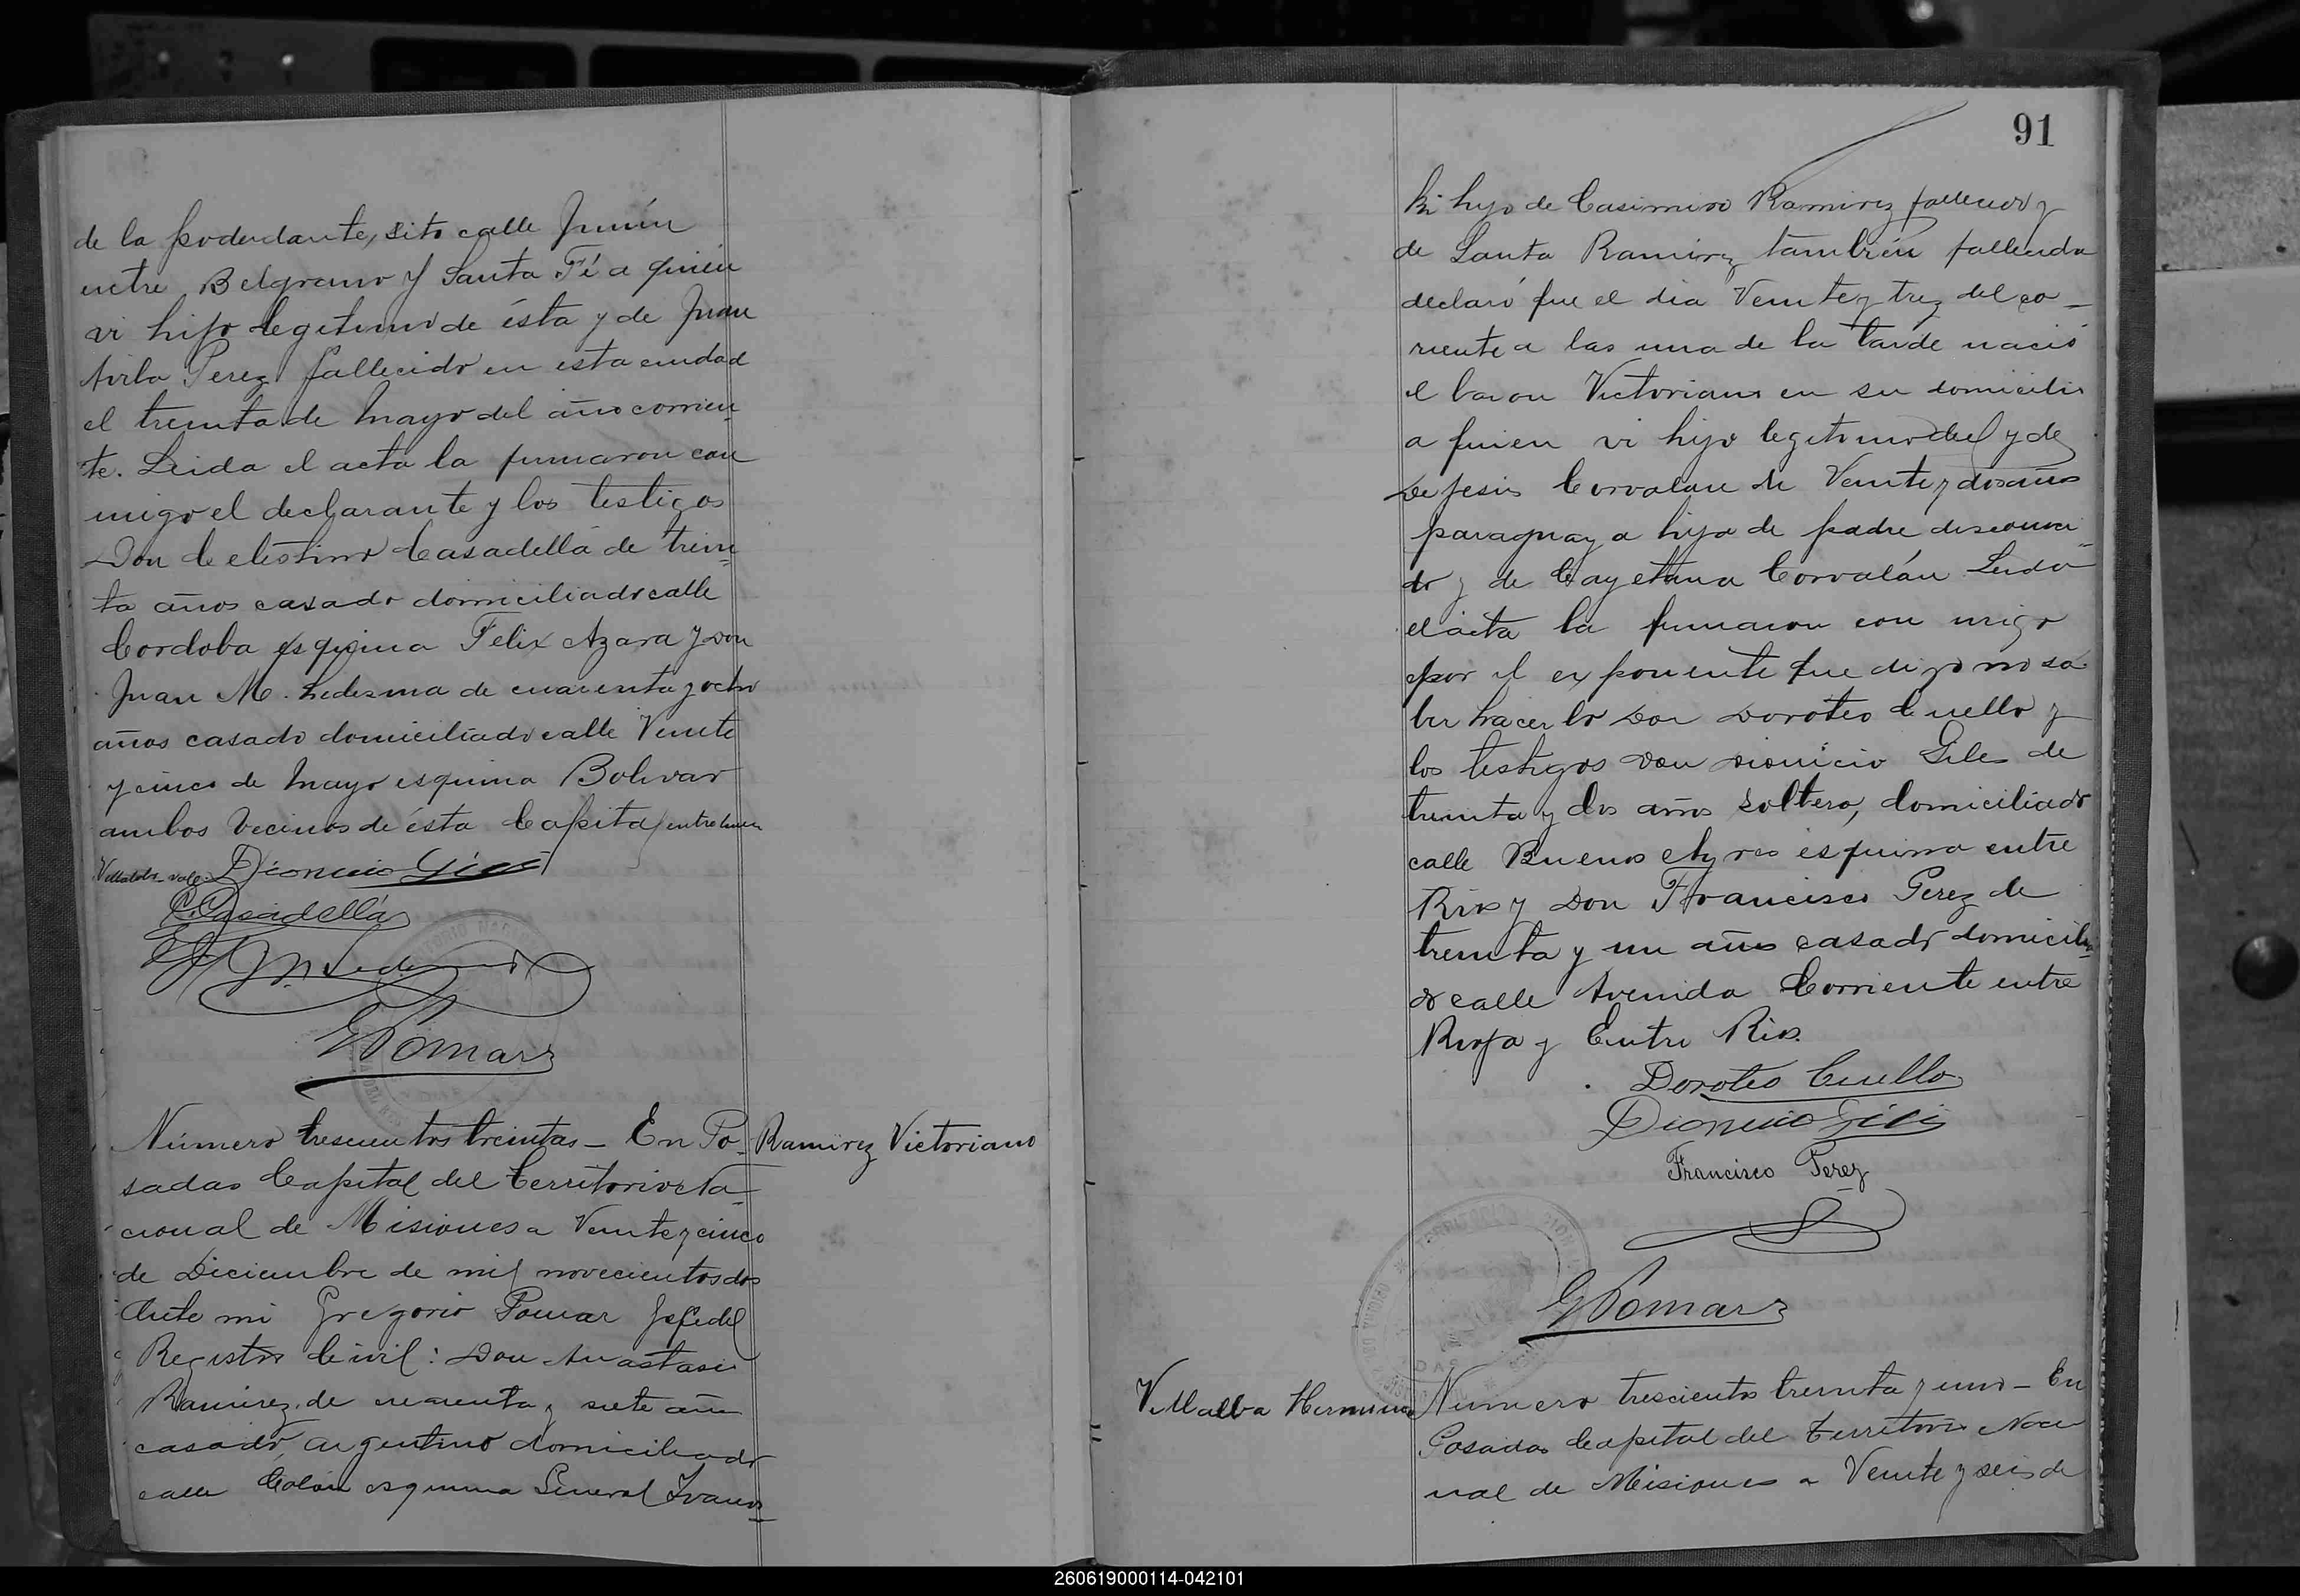 de la poderdante, sito calle Junín
entre Belgrano y Santa Fé a quien
vi hijo legitimo de ésta y de Juan
Avila Perez fallecido en esta ciudad
el treinta de Mayo del año corrien
te. Leida el acta la firmaron con
migo el declarante y los testigos
Don Celestino Casadellá de trein
ta años casado domiciliado calle
Cordoba esquina Felix Azara y Don
Juan M. Ledesma de cuarenta y ocho
años casado domiciliado calle Veinte
y cinco de Mayo esquina Bolivar
ambos vecinos de ésta Capital
vale. Dionicio
C. Casadellá
G Pomar
Número trescientos treinta - En Po
Ramirez Victoriano
sadas Capital del Territorio Na
cional de Misiones a Veinte y cinco
de Diciembre de mil novecientos dos
Ante mi Gregorio Pomar Jefe del
Registro Civil: Don Anastasio
Ramirez, de cuarenta y siete años
casado, argentino domiciliado
calle Colón esquina General Ivanos
91
ki hijo de Casimiro Ramirez fallecido y
de Santa Ramirez también fallecida
declaró que el dia Veinte y trez del co
rriente a las una de la tarde nació
el baron Victoriano en su domicilio
a quien vi hijo legitimo del y de
De Jesus Corvalan de Veinte y dos años
paraguaya hija de padre desconoci
do y de Cayetana Corvalán Leida
el acta la firmaron con migo
por el exponente que dijo no sa
ber hacerlo Don Doroteo Cuello y
los testigos Don Dionicio Giles de
treinta y dos años soltero, domiciliado
calle Buenos Ayres esquina entre
Rios y Don Francisco Perez de
treinta y un años casado domicilia
do calle Avenida Corriente entre
Rioja y Entre Rios.
Doroteo Cuello
Dionicio
Francisco Perez
G Pomar
Villalba Herminia
Número trescientos treinta y uno - En
Posadas Capital del Territorio Nacio
nal de Misiones a Veinte y seis de
260619000114-042101